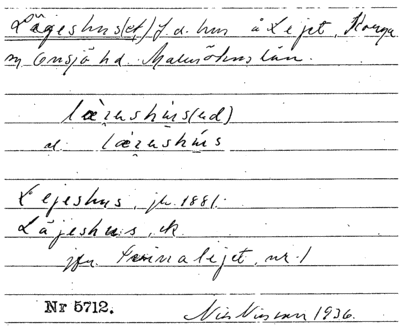 Lägeshus(et) f.d. hus å Lejet, Konga
sn Onsjö hd. Malmöhus län.
læʒushús(ud)
el. læʒushús
Lejeshus, jb. 1881.
Läjeshus, ek
jfr. Svinalejet, nr. 1
Nr 5712.
Nils Nilsson 1936.